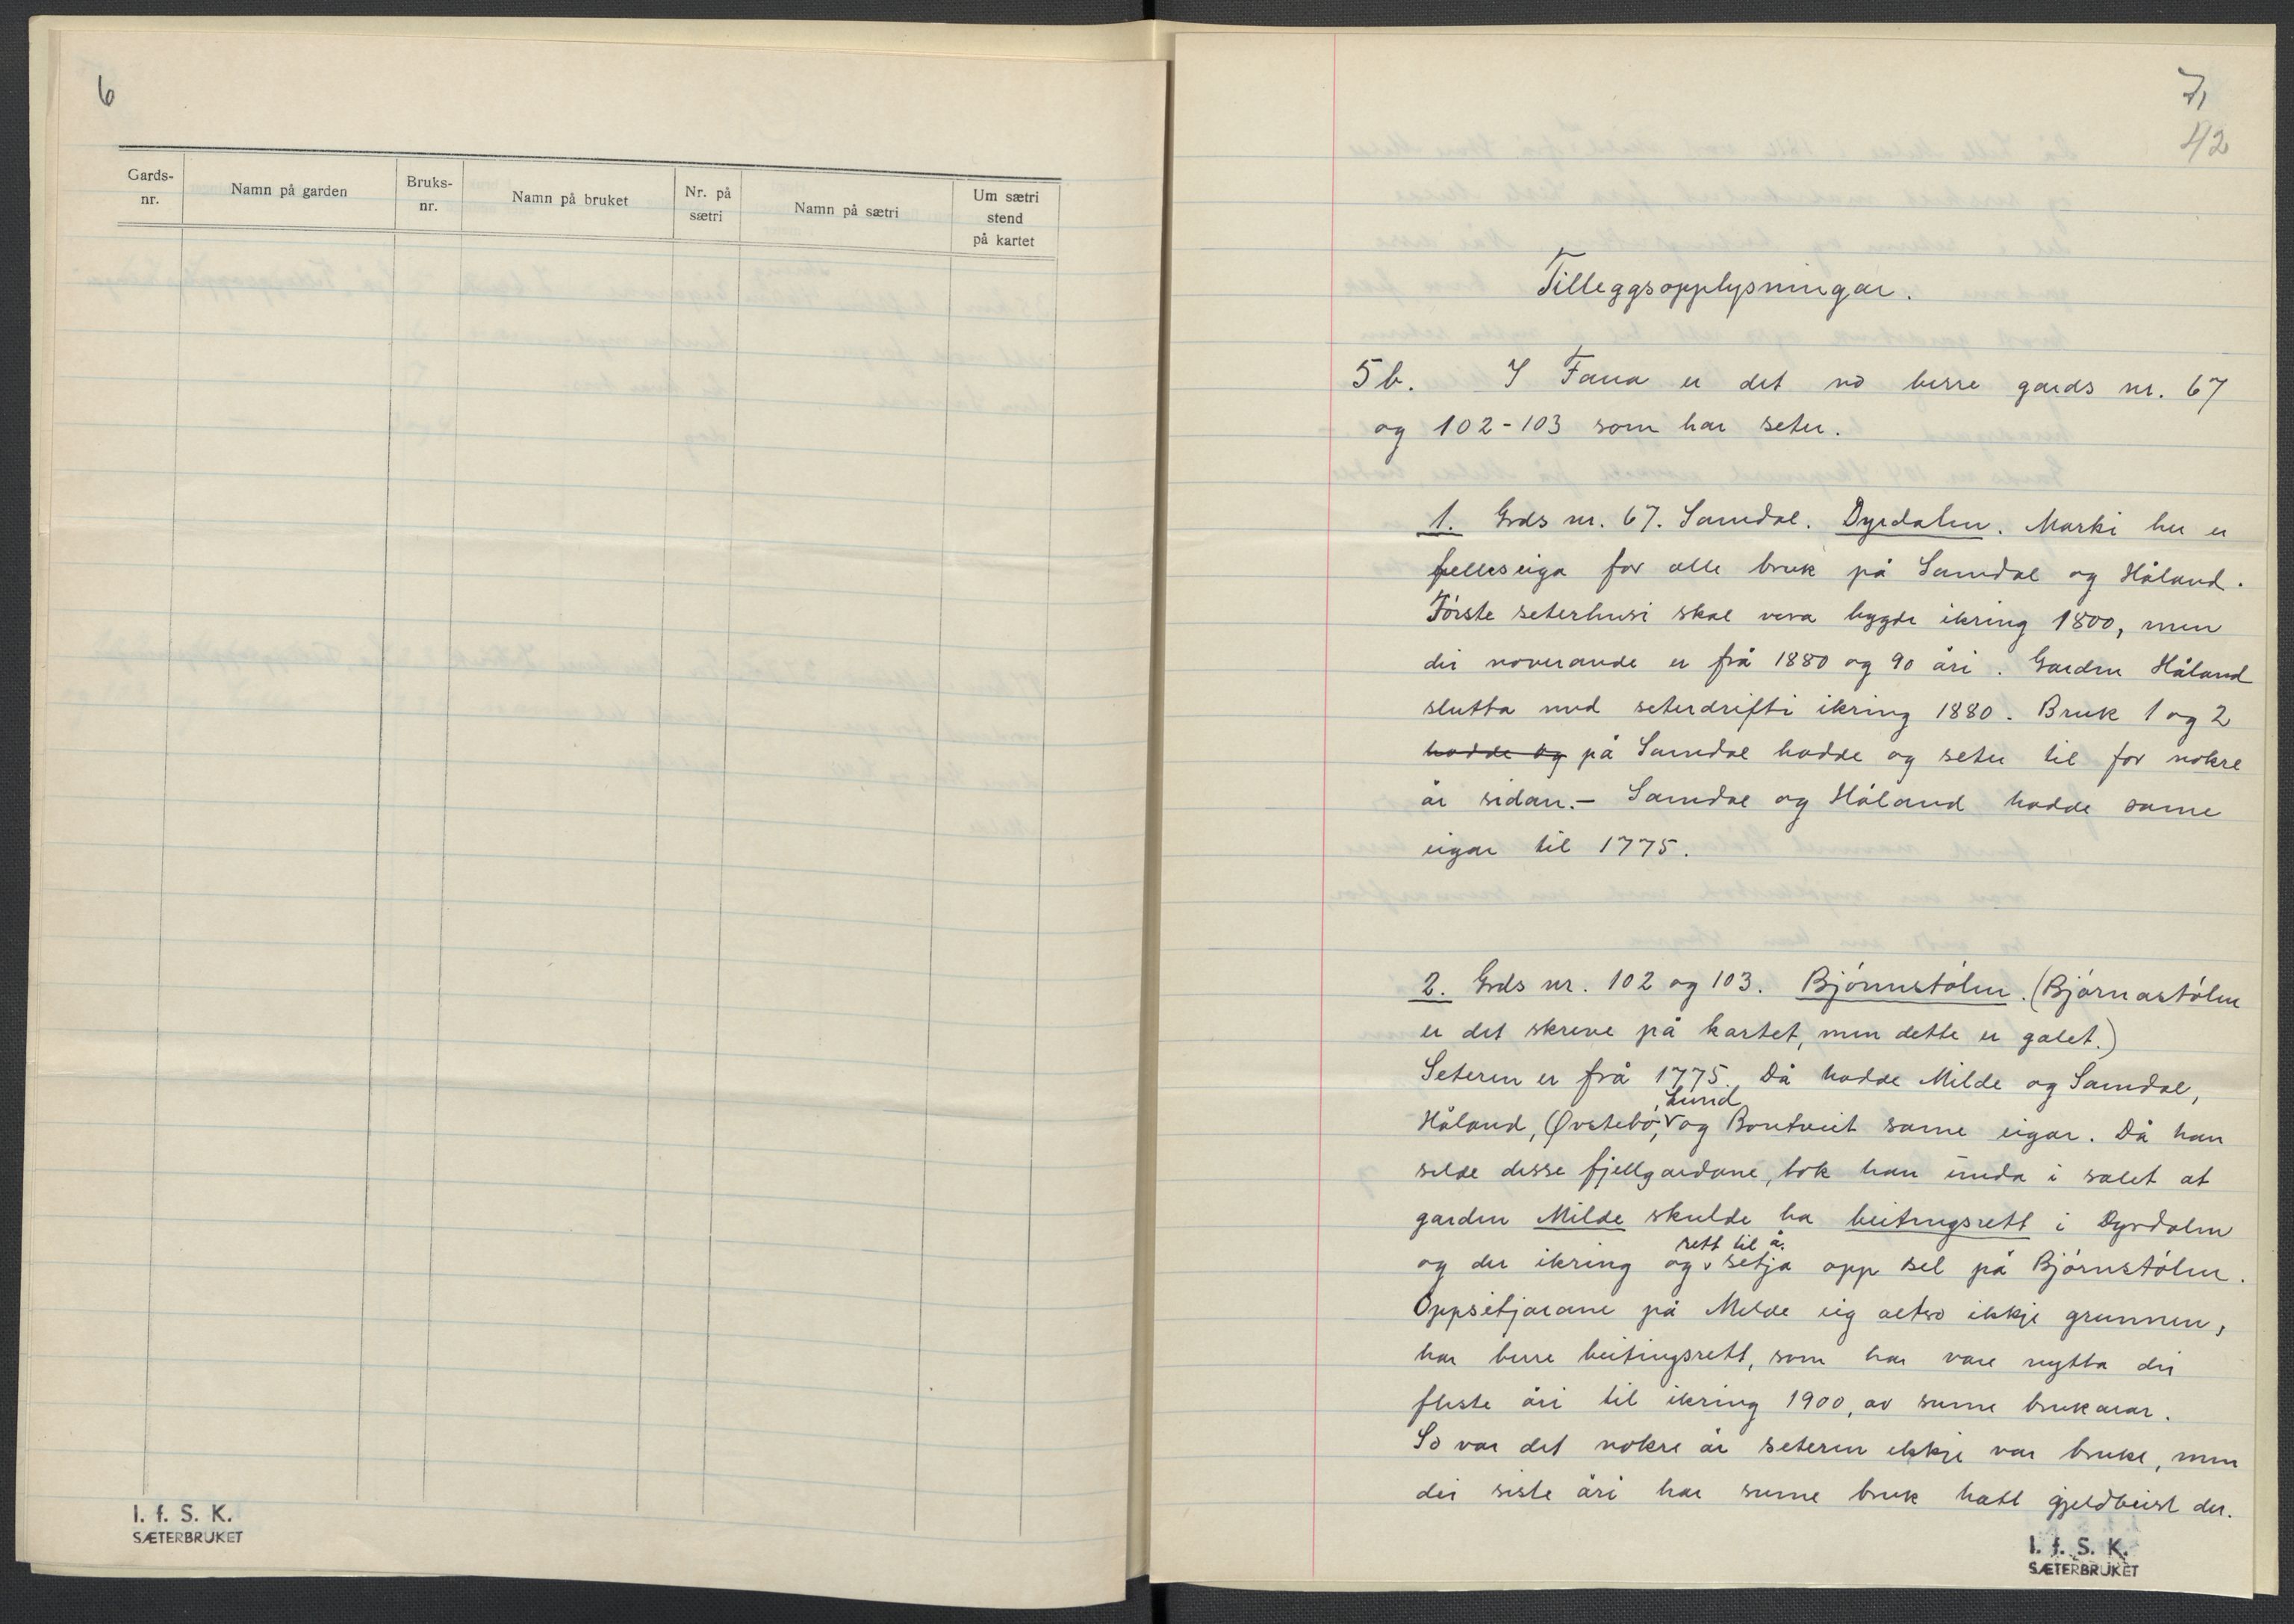 6
Gards-
nr.
Namn på garden
Bruks-
nr.
Namn på bruket
Nr. på
sætri
Namn på sætri
Um sætri
stend
på kartet
I. f. S. K.
SÆTERBRUKET
7,
42
Tilleggsopplysningar.
5b. I Fana er det no berre gards nr. 67
og 102-103 som har seter.
1. Grds nr. 67. Samdal. Dyrdalen. Marki her er
felleseiga for alle bruk på Samdal og Håland.
Fórste seterhusi skal vera bygde ikring 1800, men
dei noverande er frå 1880 og 90 åri. Garden Håland
slutta med seterdrifti ikring 1880. Bruk 1 og 2
hadde og på Samdal hadde og seter til for nokre
år sidan.- Samdal og Håland hadde same
eigar til 1775.
2. Grds nr. 102 og 103. Bjórnstólen. (Bjørnastólen
er det skreve på kartet, men dette er galet.)
Seteren er frå 1775. Då hadde Milde og Samdal,
Håland, Øvstebó, Lund og Bontveit same eigar. Då han
selde desse fjellgardane, tok han unda i salet at
garden Milde skulde ha beitingsrett i Dyrdalen
og der ikring og rett til å setja opp sel på Bjórnstólen.
Oppsitjarane på Milde eig altso ikkje grunnen,
har berre beitingsrett, som har vore nytta dei
fleste åri til ikring 1900, av sume brukarar.
So var det nokre år seteren ikkje var bruka, men
dei siste åri har sume bruk hatt gjeldbeist der.
I. f. S. K.
SÆTERBRUKET